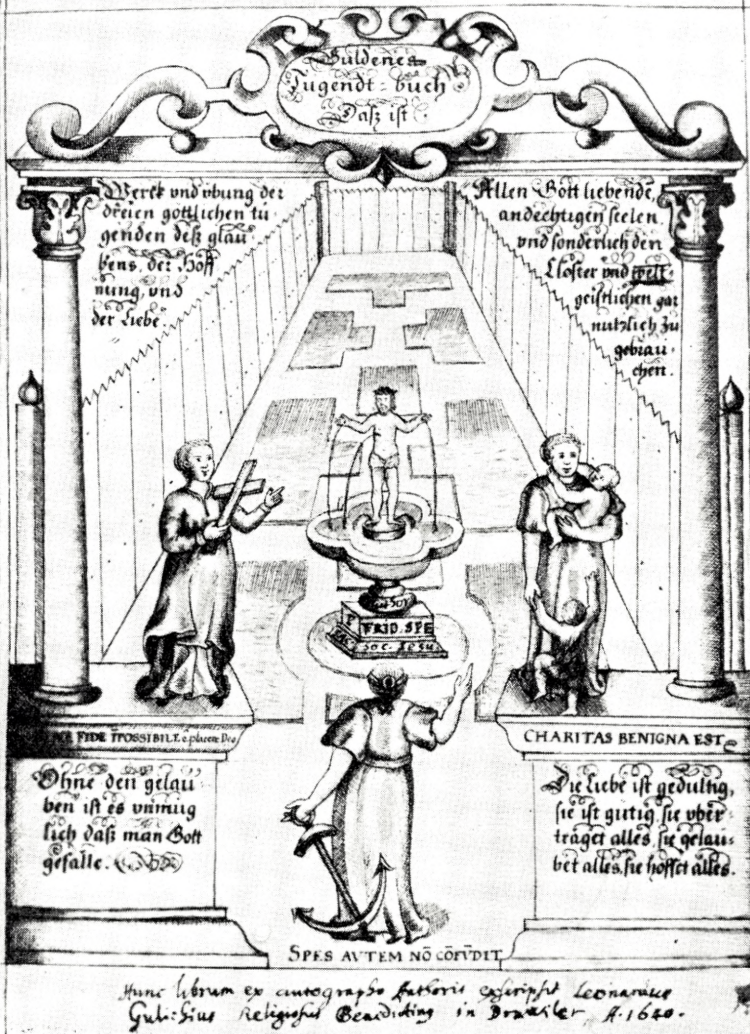 Güldenes
Tugendt-buch
Dasz ist
Werck vnd vbung der
dreien göttlichen tu
genden desz glau
bens, der Hoff
nung, vnd
der Liebe
Allen Gott liebende,
andechtigen seelen
vnd sonderlich den
Closter vnd welt
geistlichen gar
nutzlich zu
gebrau-
chen.
P FRID. SPE
SOC. Iesu
FIDE IPOSSIBILE e. placere Deo
CHARITAS BENIGNA EST
Ohne den gelau
ben ist es vnmüg
lich dasz man Gott
gefalle.
Die Liebe ist gedultig,
sie ist gutig, sie vber-
träget alles, sie gelau-
bet alles, sie hoffet alles.
SPES AVTEM NŌ CŌFVDIT
Hunc librum ex autographo Authoris exscripsit Leonardus
Gulichius Religiosus Benedictinus in Brawiler A. 1640.